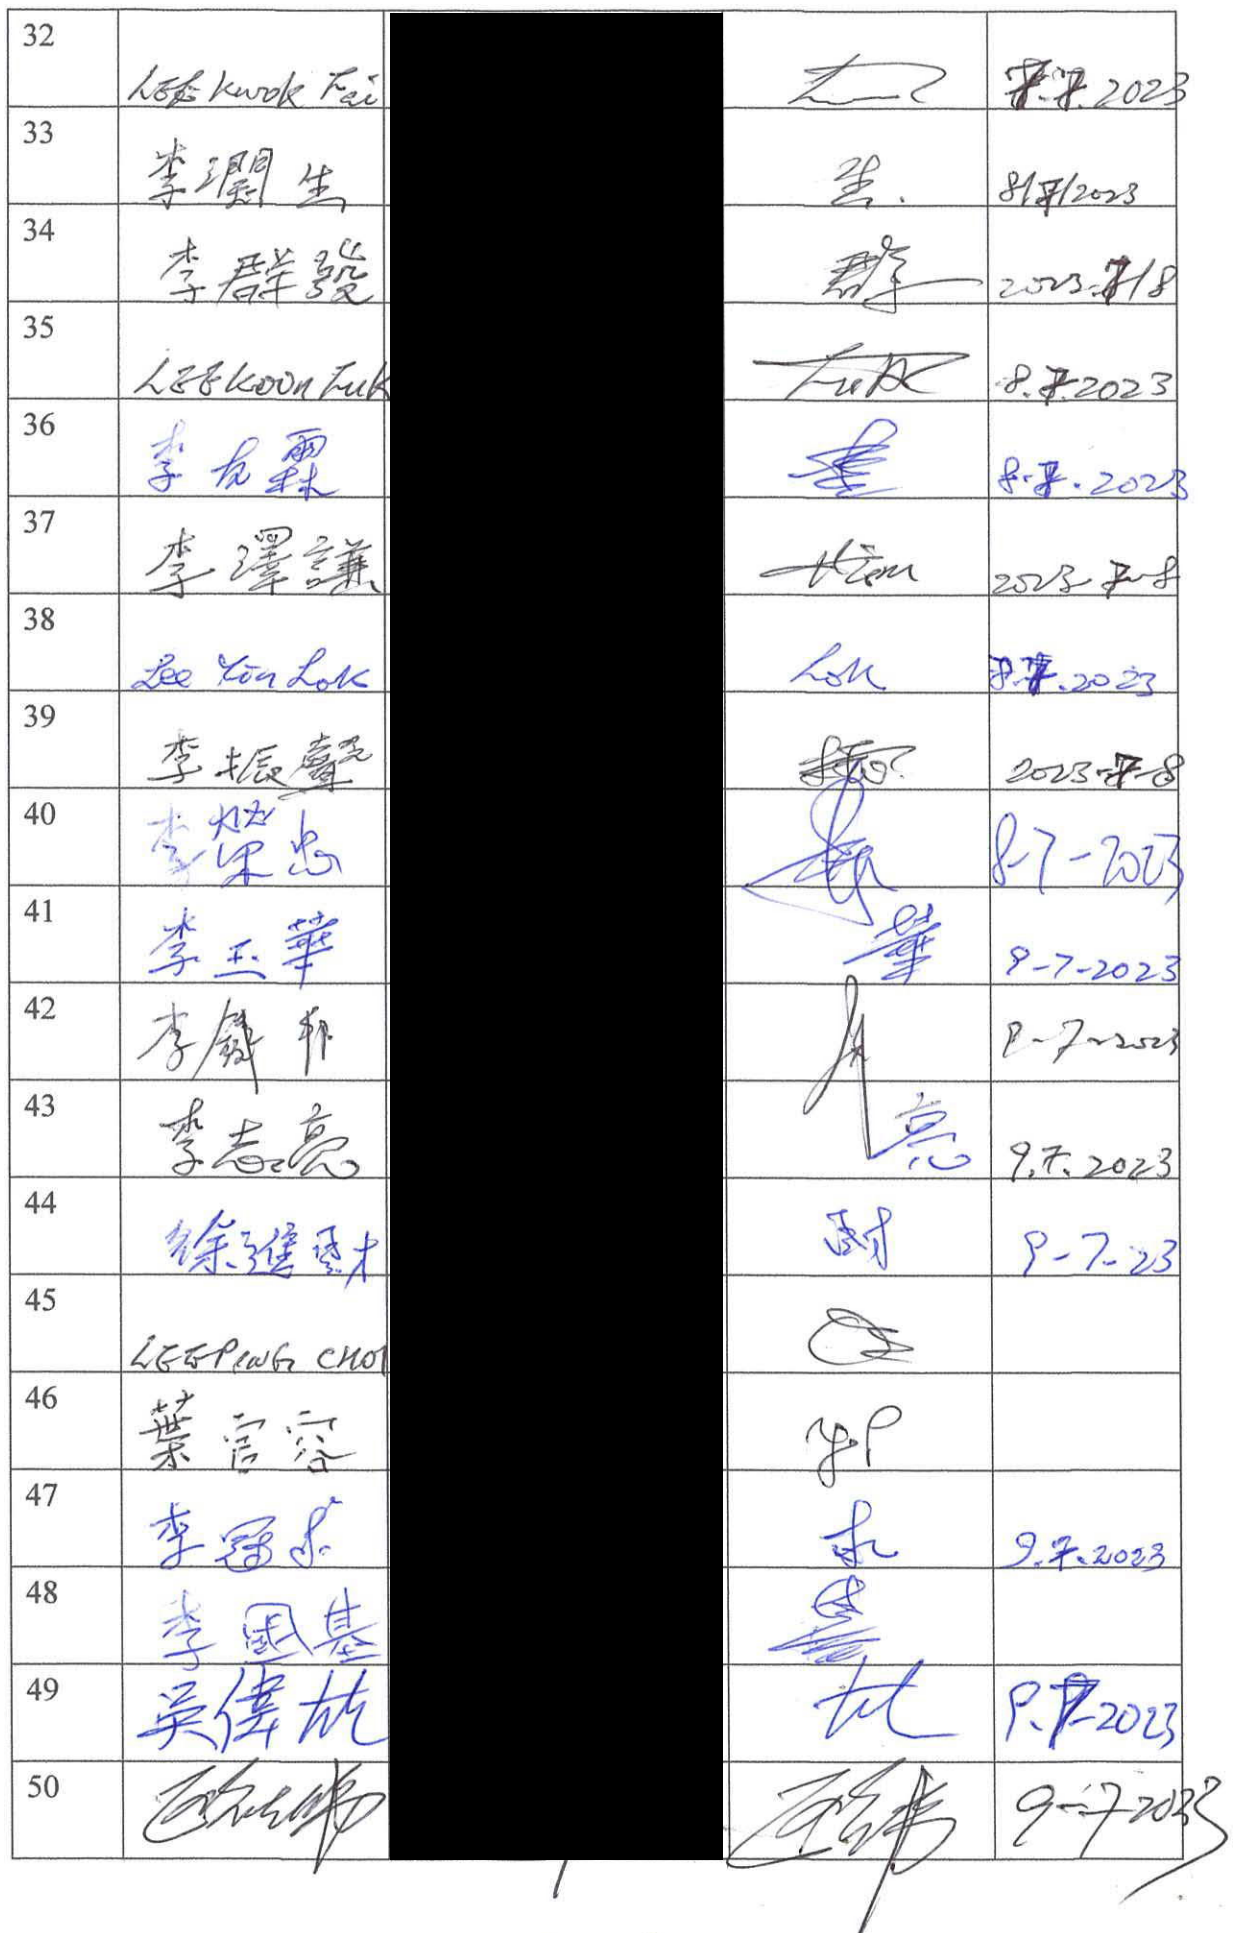 32 LEE Kwok Fai 7.7.2023
33 李潤生 生. 8/7/2023
34 李群發 群 2023-7/8
35 LEE KOON FUK FUK 8.7.2023
36 李友霖 8.7.2023
37 李澤謙 Him 2023-7-8
38 Lee Yin Lok Lok 8.7.2023
39 李振聲 2023-7-8
40 李榮忠 8-7-2023
41 李玉華 華 9-7-2023
42 李 9-7-2023
43 李志亮 亮 9.7.2023
44 徐進財 財 9-7-23
45 LEE PING CHOI
46 葉官容 y.p
47 李冠求 求 9.7.2023
48 李國基
49 吳偉 9.7-2023
50 9-7-2023